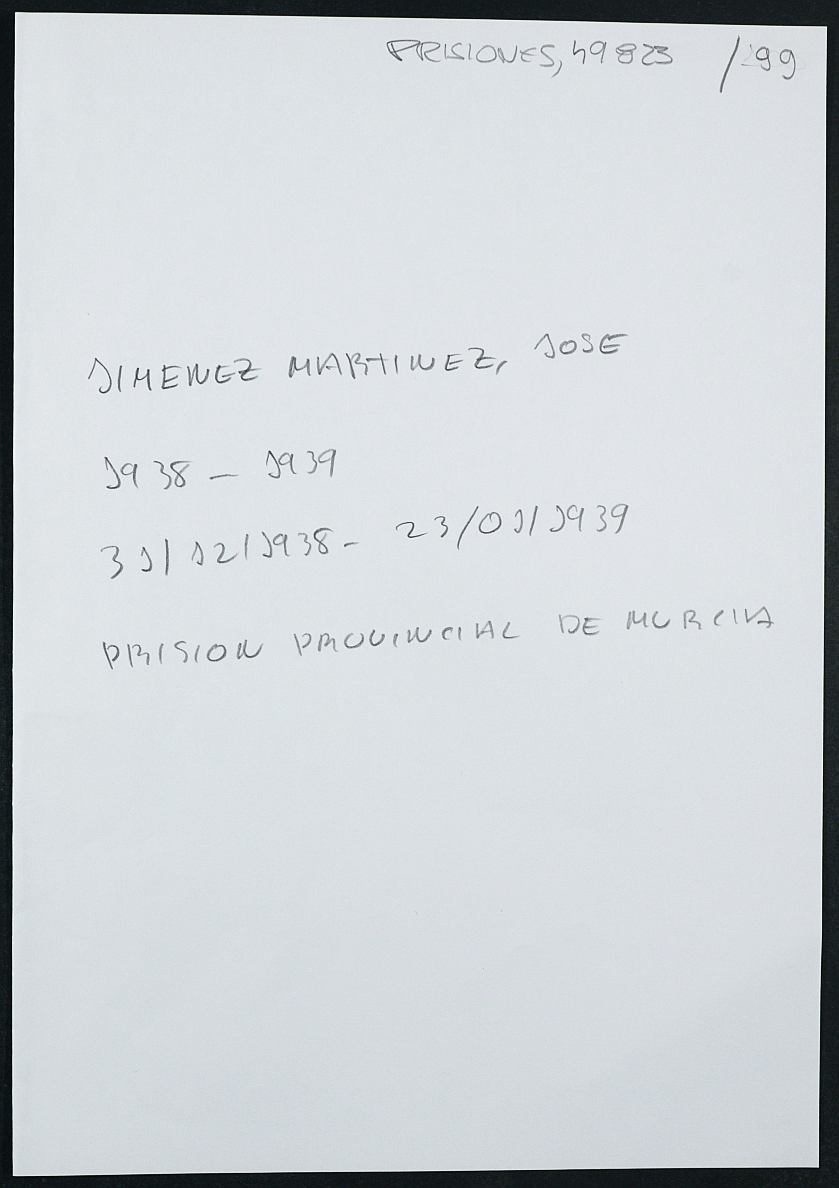 PRISIONES, 49823 /99
JIMENEZ MARTINEZ, JOSE
1938 - 1939
31/12/1938 - 23/01/1939
PRISION PROVINCIAL DE MURCIA